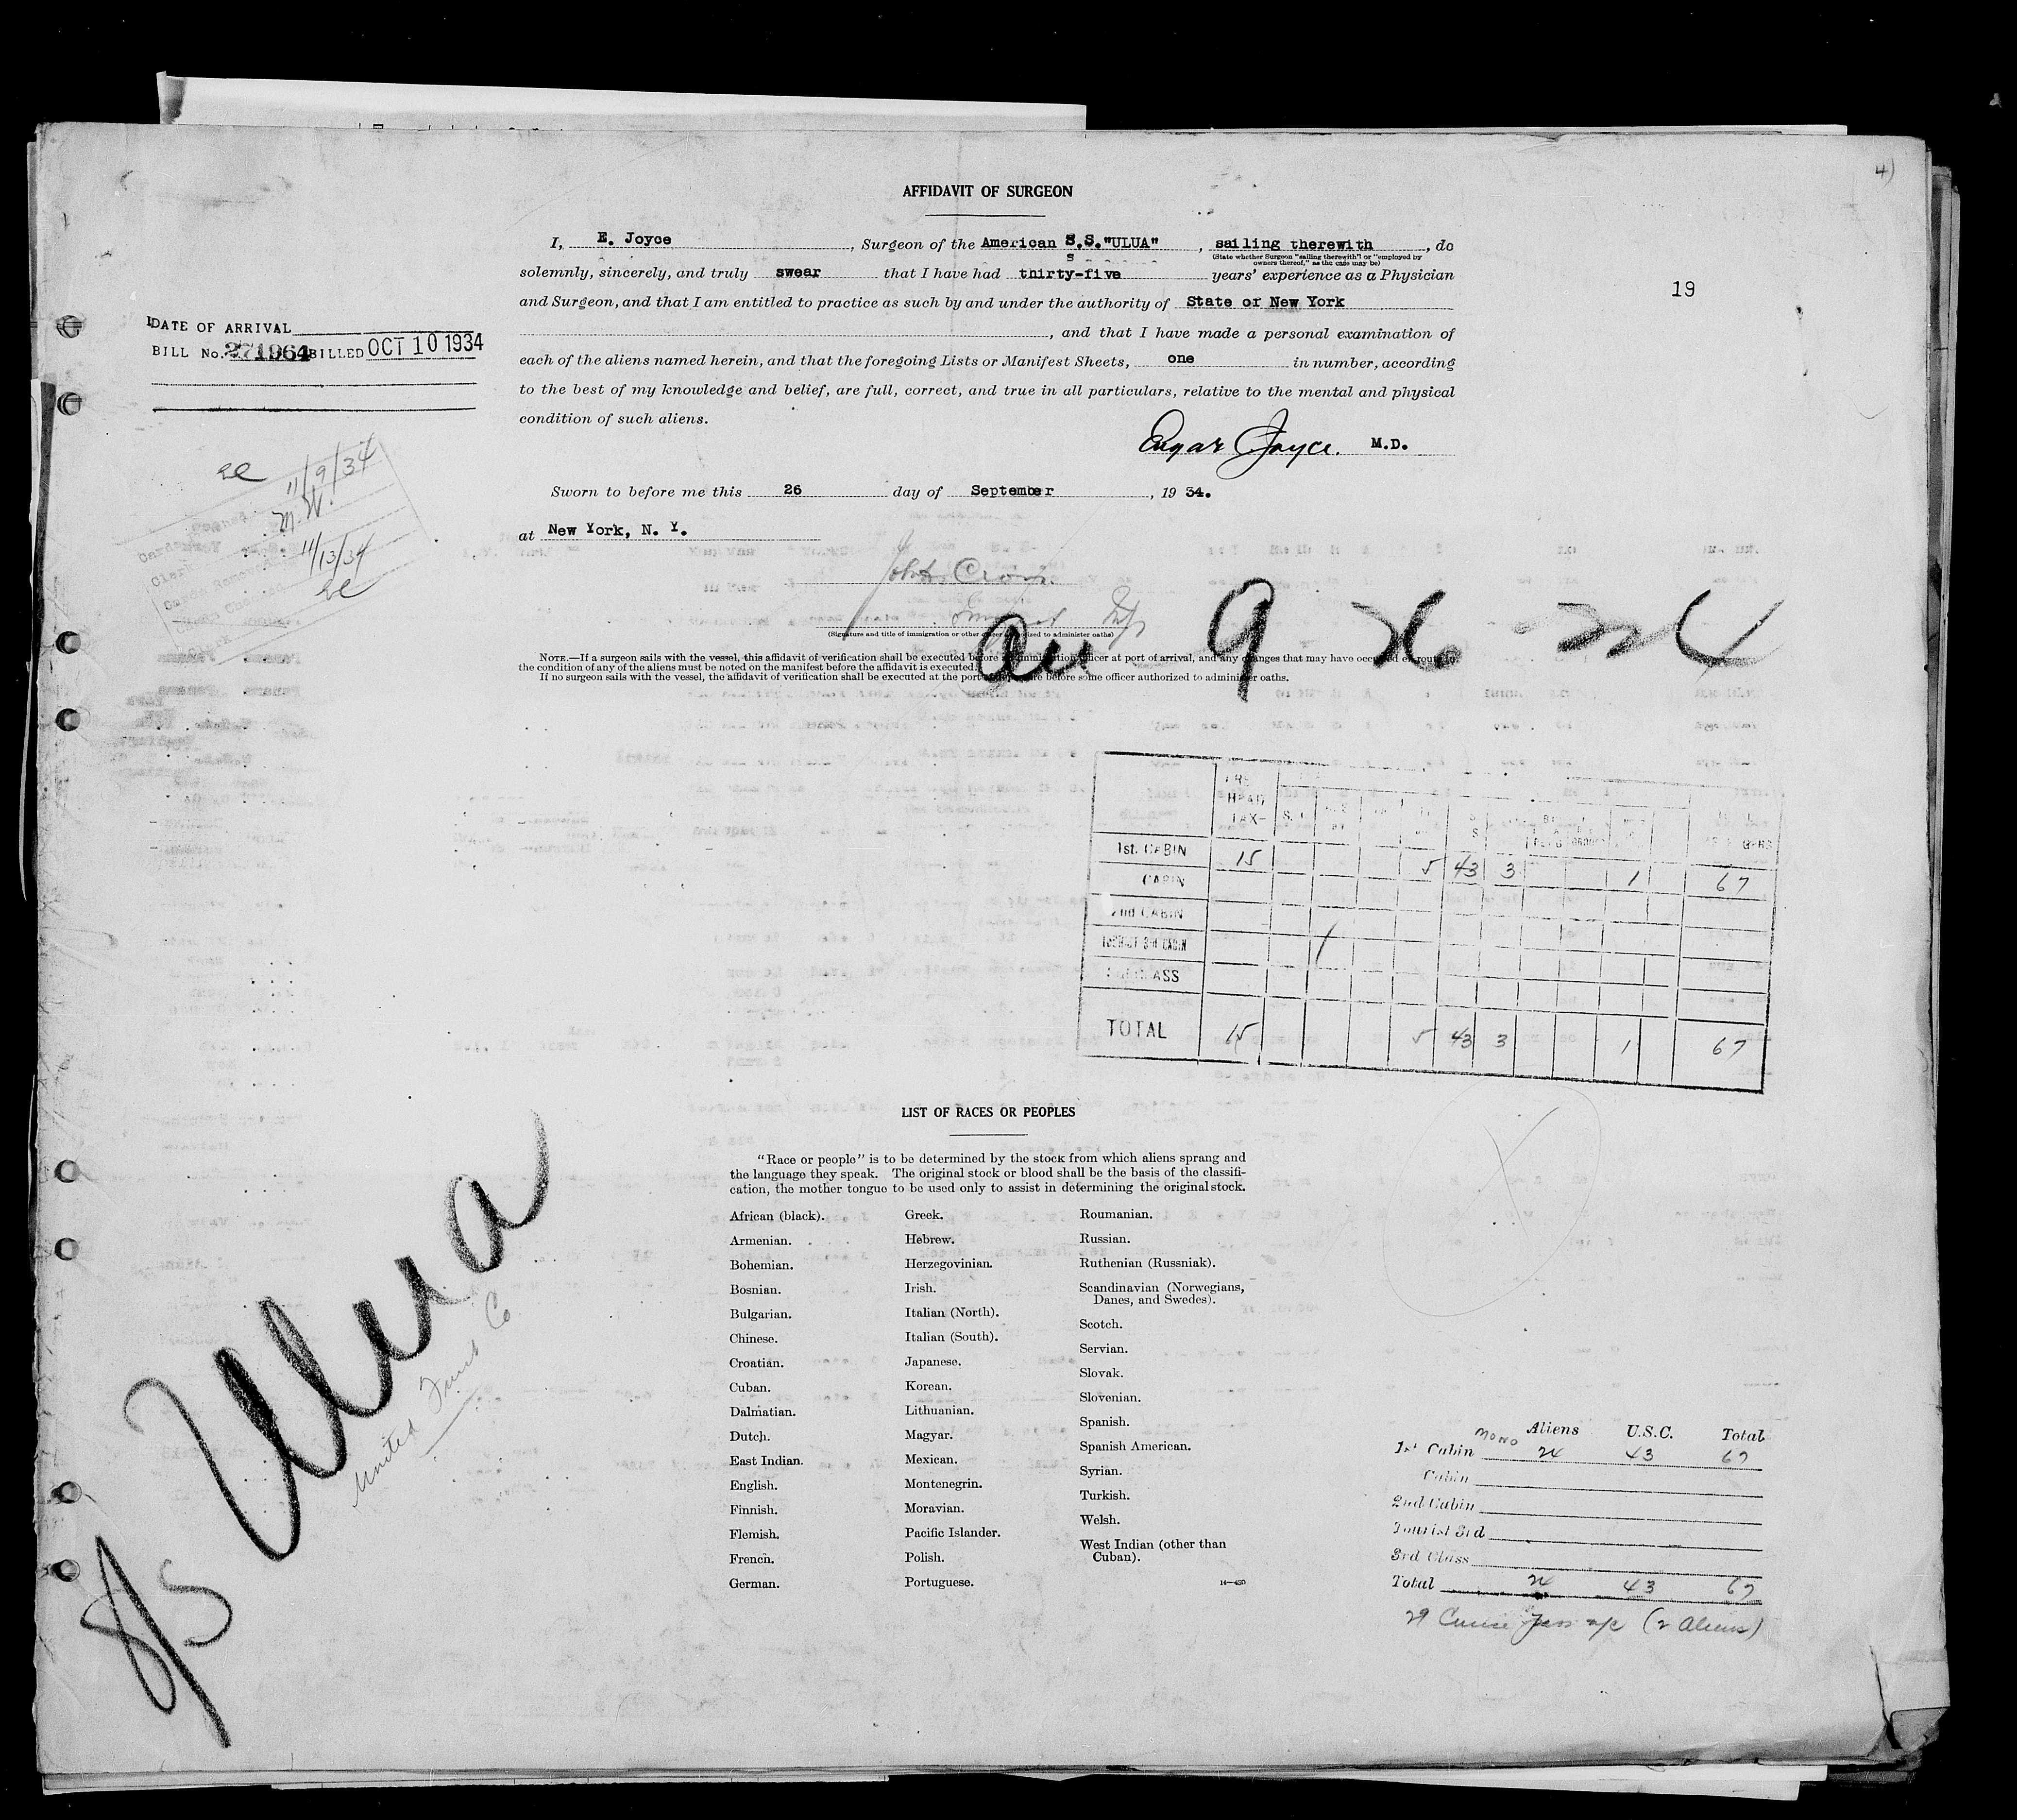 4)
AFFIDAVIT OF SURGEON
I, E. Joyce, Surgeon of the American S.S."ULUA", sailing therewith, do
(State whether Surgeon "sailing therewith" or "employed by
owners thereof," as the case may be)
solemnly, sincerely, and truly swear that I have had thirty-five years' experience as a Physician
and Surgeon, and that I am entitled to practice as such by and under the authority of State or New York
, and that I have made a personal examination of
each of the aliens named herein, and that the foregoing Lists or Manifest Sheets, one in number, according
to the best of my knowledge and belief, are full, correct, and true in all particulars, relative to the mental and physical
condition of such aliens.
Edgar Joyce. M.D.
Sworn to before me this 26 day of September, 19 34.
at New York, N. Y.
19
DATE OF ARRIVAL
BILL No. 271964 BILLED OCT 10 1934
11/9/34
M.W.
11/13/34
(Signature and title of immigration or other officer authorized to administer oaths)
NOTE.—If a surgeon sails with the vessel, this affidavit of verification shall be executed before an immigration officer at port of arrival, and any changes that may have occurred en route to
the condition of any of the aliens must be noted on the manifest before the affidavit is executed.
If no surgeon sails with the vessel, the affidavit of verification shall be executed at the port of departure before some officer authorized to administer oaths.
9 26 34
HEAD
TAX
1st. CABIN 15 5 43 3 1 67
CABIN
2nd CABIN
TOURIST 3rd CABIN
3rd CLASS
TOTAL 15 5 43 3 1 67
LIST OF RACES OR PEOPLES
"Race or people" is to be determined by the stock from which aliens sprang and
the language they speak. The original stock or blood shall be the basis of the classifi-
cation, the mother tongue to be used only to assist in determining the original stock.
African (black).
Armenian.
Bohemian.
Bosnian.
Bulgarian.
Chinese.
Croatian.
Cuban.
Dalmatian.
Dutch.
East Indian.
English.
Finnish.
Flemish.
French.
German.
Greek.
Hebrew.
Herzegovinian.
Irish.
Italian (North).
Italian (South).
Japanese.
Korean.
Lithuanian.
Magyar.
Mexican.
Montenegrin.
Moravian.
Pacific Islander.
Polish.
Portuguese.
Roumanian.
Russian.
Ruthenian (Russniak).
Scandinavian (Norwegians,
Danes, and Swedes).
Scotch.
Servian.
Slovak.
Slovenian.
Spanish.
Spanish American.
Syrian.
Turkish.
Welsh.
West Indian (other than
Cuban).
14—430
S/S Ulua
United Fruit Co
Aliens U.S.C. Total
1st Cabin 24 43 67
Cabin
2nd Cabin
Tourist 3rd
3rd Class
Total 24 43 67
29 Cruise Pass (2 Aliens)